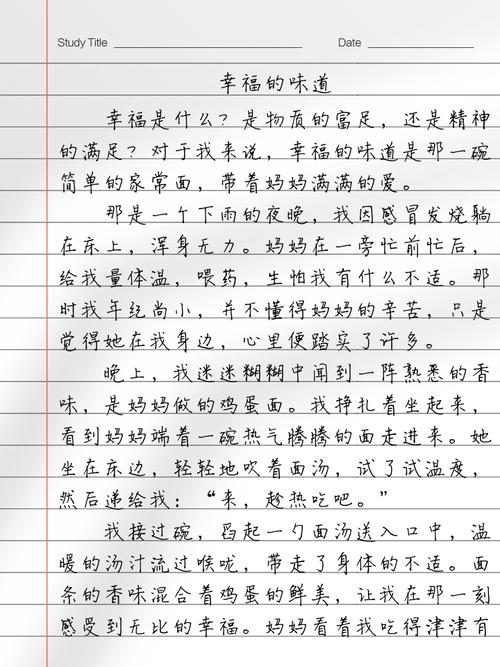 Study Title
Date
幸福的味道
幸福是什么？是物质的富足，还是精神
的满足？对于我来说，幸福的味道是那一碗
简单的家常面，带着妈妈满满的爱。
那是一个下雨的夜晚，我因感冒发烧躺
在床上，浑身无力。妈妈在一旁忙前忙后，
给我量体温，喂药，生怕我有什么不适。那
时我年纪尚小，并不懂得妈妈的辛苦，只是
觉得她在我身边，心里便踏实了许多。
晚上，我迷迷糊糊中闻到一阵熟悉的香
味，是妈妈做的鸡蛋面。我挣扎着坐起来，
看到妈妈端着一碗热气腾腾的面走进来。她
坐在床边，轻轻地吹着面汤，试了试温度，
然后递给我：“来，趁热吃吧。”
我接过碗，舀起一勺面汤送入口中，温
暖的汤汁流过喉咙，带走了身体的不适。面
条的香味混合着鸡蛋的鲜美，让我在那一刻
感受到无比的幸福。妈妈看着我吃得津津有